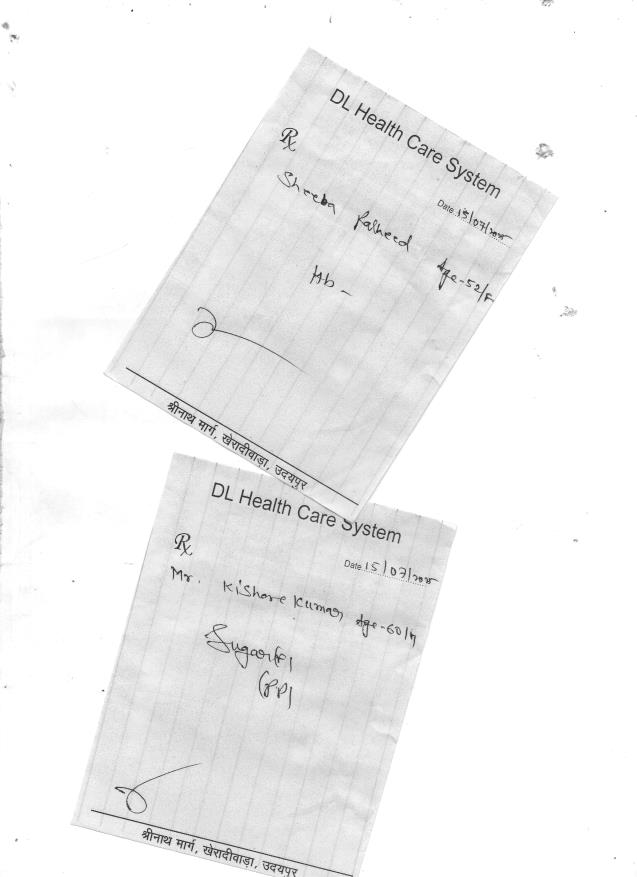 DL Health Care System
Rx
Date 15/07/2025
Sheeba Rasheed Age-52/F
Hb -
श्रीनाथ मार्ग, खेरादीवाड़ा, उदयपुर
DL Health Care System
Rx
Date 15/07/2025
Mr. Kishore Kumar Age-60/M
Sugar(F)
(PP)
श्रीनाथ मार्ग, खेरादीवाड़ा, उदयपुर